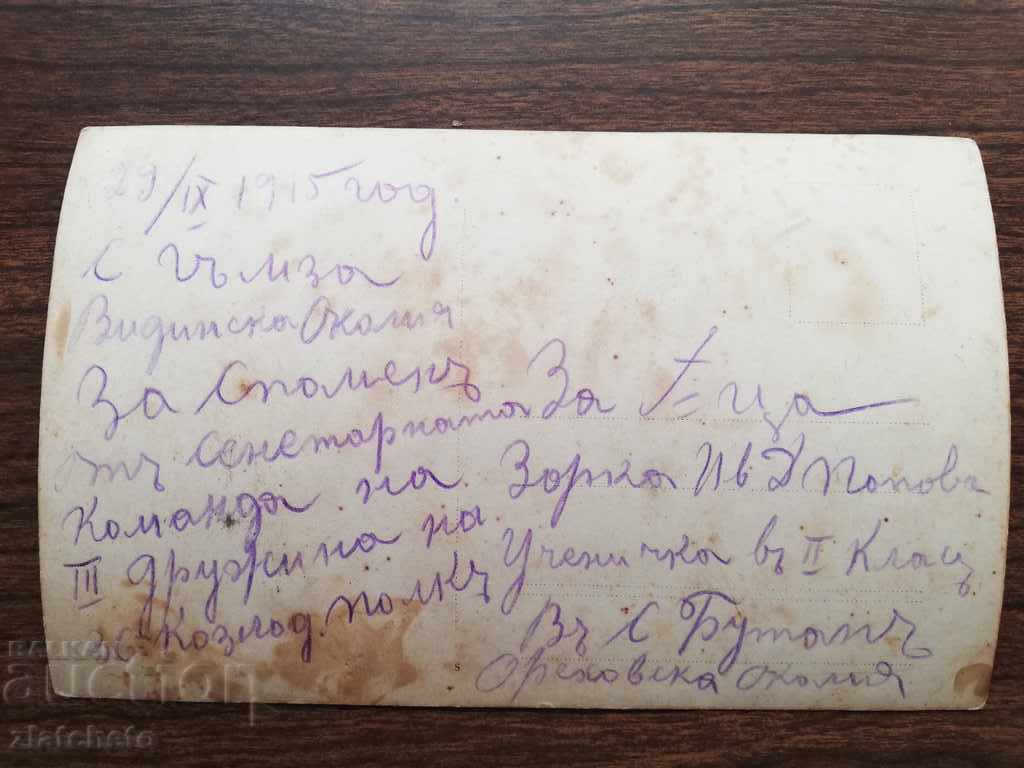 29/IX 1915 год.
с Гъмза
Видинска Околия
За Споменъ
отъ Сенетарната
Команда на
III Дружина на
36 Козлод. полкъ
За Г-ца
Зорка Ив Д Попова
Ученичка въ II Класъ
Въ С Бутанъ
Ореховска околия
BALKAN
auction
zlatcheto